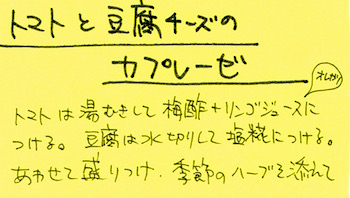 トマトと豆腐チーズの
カプレーゼ
オレガノ
トマトは湯むきして梅酢+リンゴジュースに
つける。豆腐は水切りして塩糀につける。
あわせて盛りつけ、季節のハーブを添えて